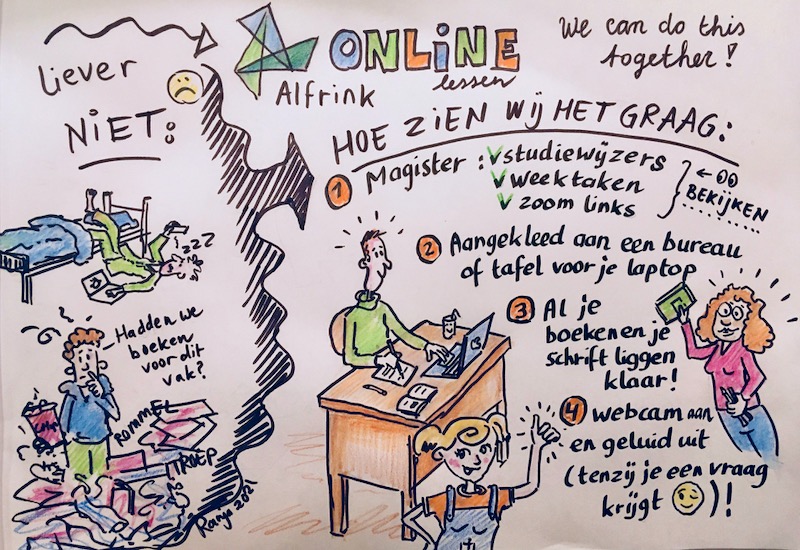 liever
NIET:
ONLINE
lessen
Alfrink
We can do this
together!
HOE ZIEN WIJ HET GRAAG:
1 Magister: studiewijzers
weektaken
zoom links
BEKIJKEN
2 Aangekleed aan een bureau
of tafel voor je laptop
3 Al je
boeken en je
schrift liggen
klaar!
4 webcam aan
en geluid uit
(tenzij je een vraag
krijgt )!
zzz
Hadden we
boeken
voor dit
vak?
ROMMEL
TROEP
Ranja 2021